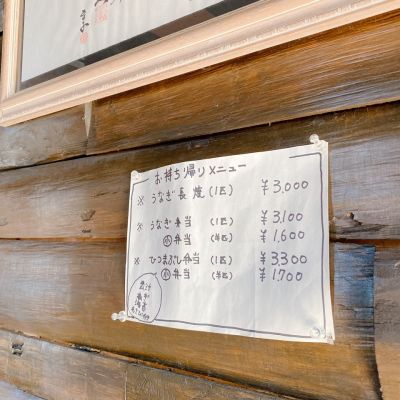 お持ち帰りメニュー
※ うなぎ長焼 (1匹) ¥3,000
※ うなぎ弁当 (1匹) ¥3,100
小 弁当 (半匹) ¥1,600
※ ひつまぶし弁当 (1匹) ¥3,300
小 弁当 (半匹) ¥1,700